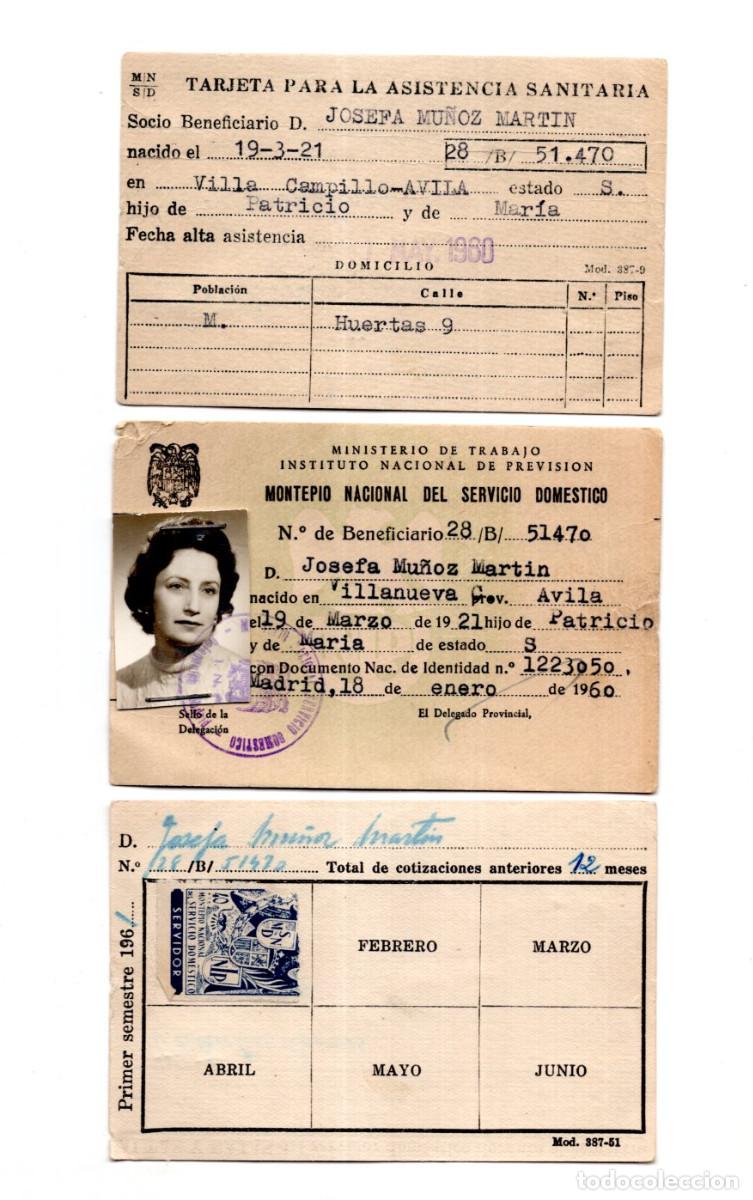 M N
S D
TARJETA PARA LA ASISTENCIA SANITARIA
Socio Beneficiario D. JOSEFA MUÑOZ MARTIN
nacido el 19-3-21 28 /B/ 51.470
en Villa Campillo-AVILA estado S.
hijo de Patricio y de María
Fecha alta asistencia 1960
DOMICILIO Mod. 387-9
Población Calle N.º Piso
M. Huertas 9
MINISTERIO DE TRABAJO
INSTITUTO NACIONAL DE PREVISION
MONTEPIO NACIONAL DEL SERVICIO DOMESTICO
N.º de Beneficiario 28 /B/ 51470
D. Josefa Muñoz Martin
nacido en Villanueva C. Prov. Avila
el 19 de Marzo de 1921 hijo de Patricio
y de Maria de estado S
con Documento Nac. de Identidad n.º 1223050,
Madrid, 18 de enero de 1960
Sello de la
Delegación
El Delegado Provincial,
SERVICIO DOMESTICO
D. Josefa Muñoz Martin
N.º 28 /B/ 51470 Total de cotizaciones anteriores 12 meses
Primer semestre 1961
MONTEPIO NACIONAL
DEL SERVICIO DOMESTICO
SERVIDOR
FEBRERO MARZO
ABRIL MAYO JUNIO
Mod. 387-51
todocoleccion